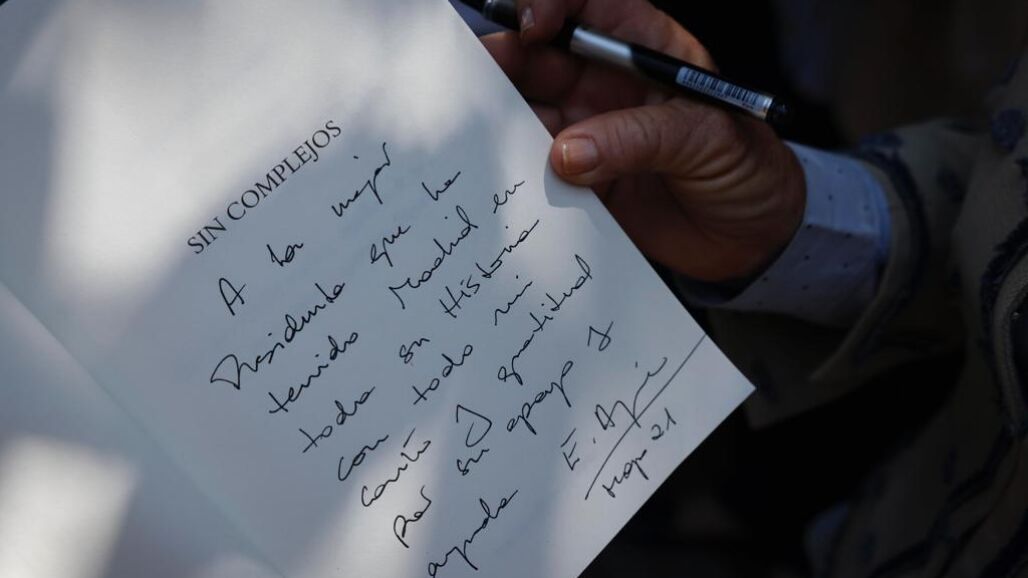 SIN COMPLEJOS
A la mejor
Presidenta que ha
tenido Madrid en
toda su Historia
con todo mi
cariño y gratitud
Por su apoyo y
ayuda
E.
May 21